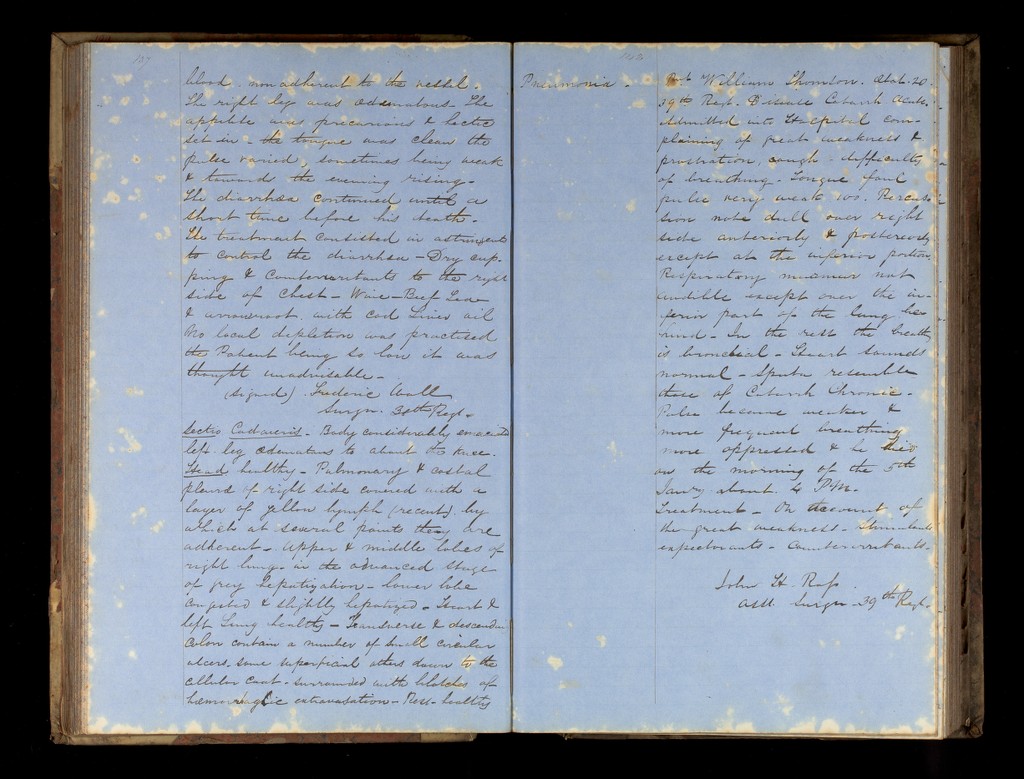 107
blood nonadherent to the vessel.
The right leg was odematous. The
appetite was precarious & hectic
set in - the tongue was clean the
pulse varied, sometimes being weak
& towards the evening rising -
The diarrhœa continued until a
short time before his death -
The treatment consisted in astringents
to control the diarrhœa - Dry cup-
ping & Counterirritants to the right
side of Chest - Wine - Beef Tea
& arrowroot with Cod Liver oil
No local depletion was practised
the Patient being so low it was
thought unadvisable -
(Signed) Frederic Wall
Surgn. 39th Regt -
Sectio Cadaveris - Body considerably emaciated
left leg odematous to about the knee.
Head healthy - Pulmonary & costal
pleura of right side covered with a
layer of yellow lymph (recent) by
which at several points they are
adherent - Upper & middle lobes of
right lung in the advanced stage
of grey hepatization - lower lobe
congested & slightly hepatized - Heart &
left lung healthy - Transverse & descending
Colon contain a number of small circular
ulcers, some superficial others down to the
cellular coat - surrounded with blotches of
hœmorrhagic extravasation - Rest healthy
Pneumonia -
Pvt William Thornton. Ætat. 20
39th Regt. Disease Catarrh Acute.
Admitted into Hospital com-
plaining of great weakness &
prostration, cough - difficulty
of breathing - Tongue foul
pulse very weak 100. Percus-
sion note dull over right
side anteriorly & posteriorly
except at the inferior portion
Respiratory murmur not
audible except over the in-
ferior part of the lung be-
hind - In the rest the breath
is bronchial - Heart sounds
normal - Sputa resemble
those of Catarrh Chronic -
Pulse became weaker &
more frequent breathing
more oppressed & he died
on the morning of the 5th
Jany about 4 P.M.
Treatment - On account of
the great weakness - Stimulants
expectorants - Counterirritants -
John H. Ross
Asst. Surgn - 39th Regt -